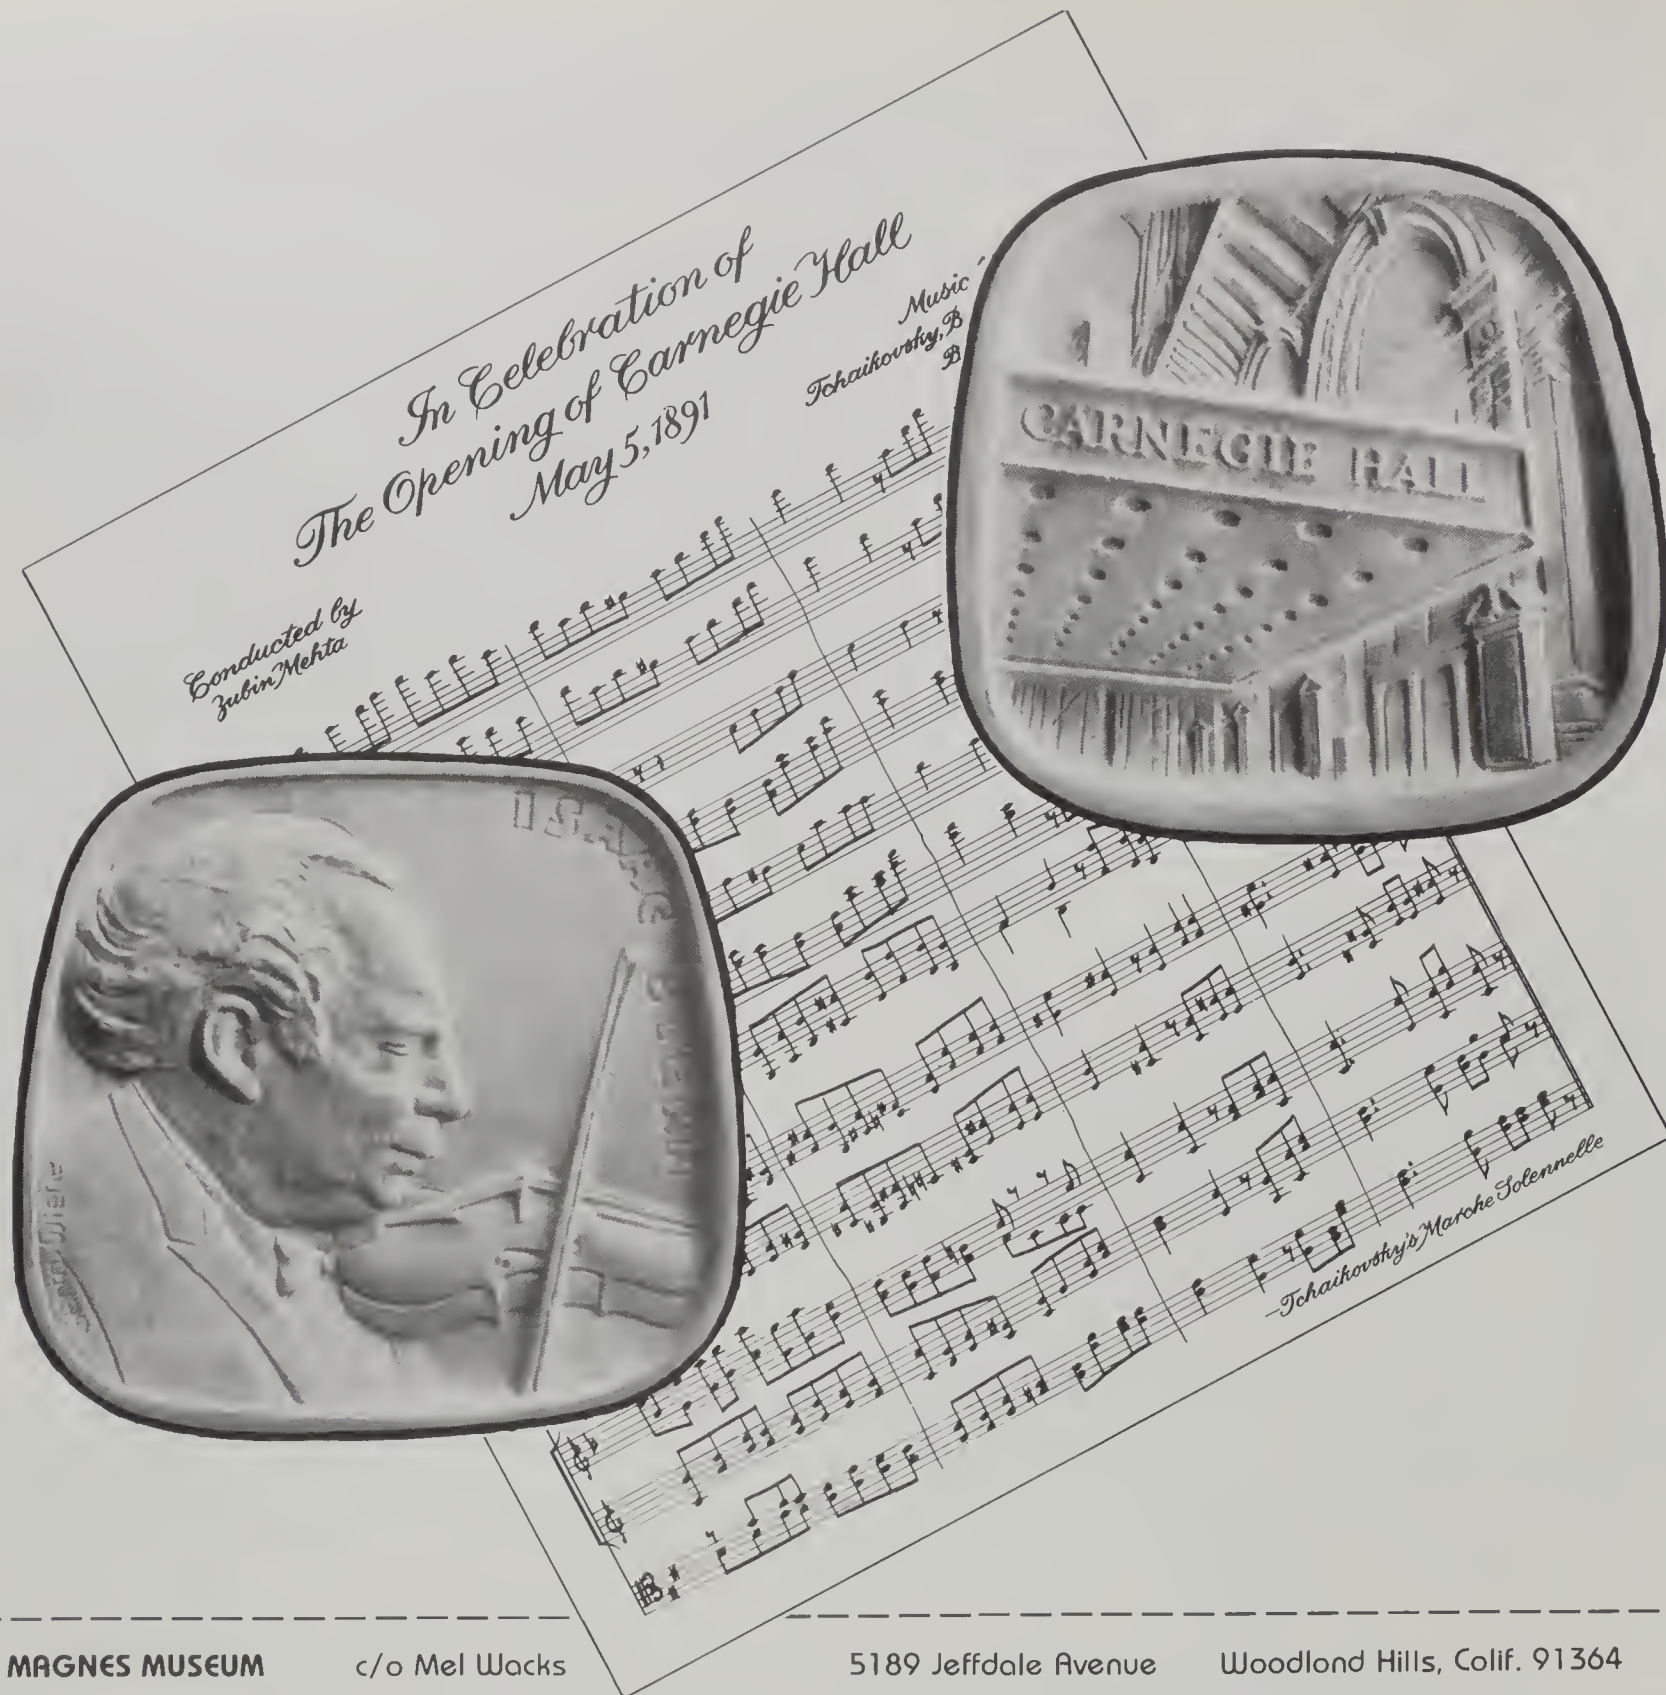 In Celebration of
The Opening of Carnegie Hall
May 5, 1891
Music
Tchaikovsky, B
B
Conducted by
Zubin Mehta
CARNEGIE HALL
ISAAC STERN
Wiener
Tchaikovsky's Marche Solennelle
MAGNES MUSEUM c/o Mel Wacks 5189 Jeffdale Avenue Woodland Hills, Calif. 91364